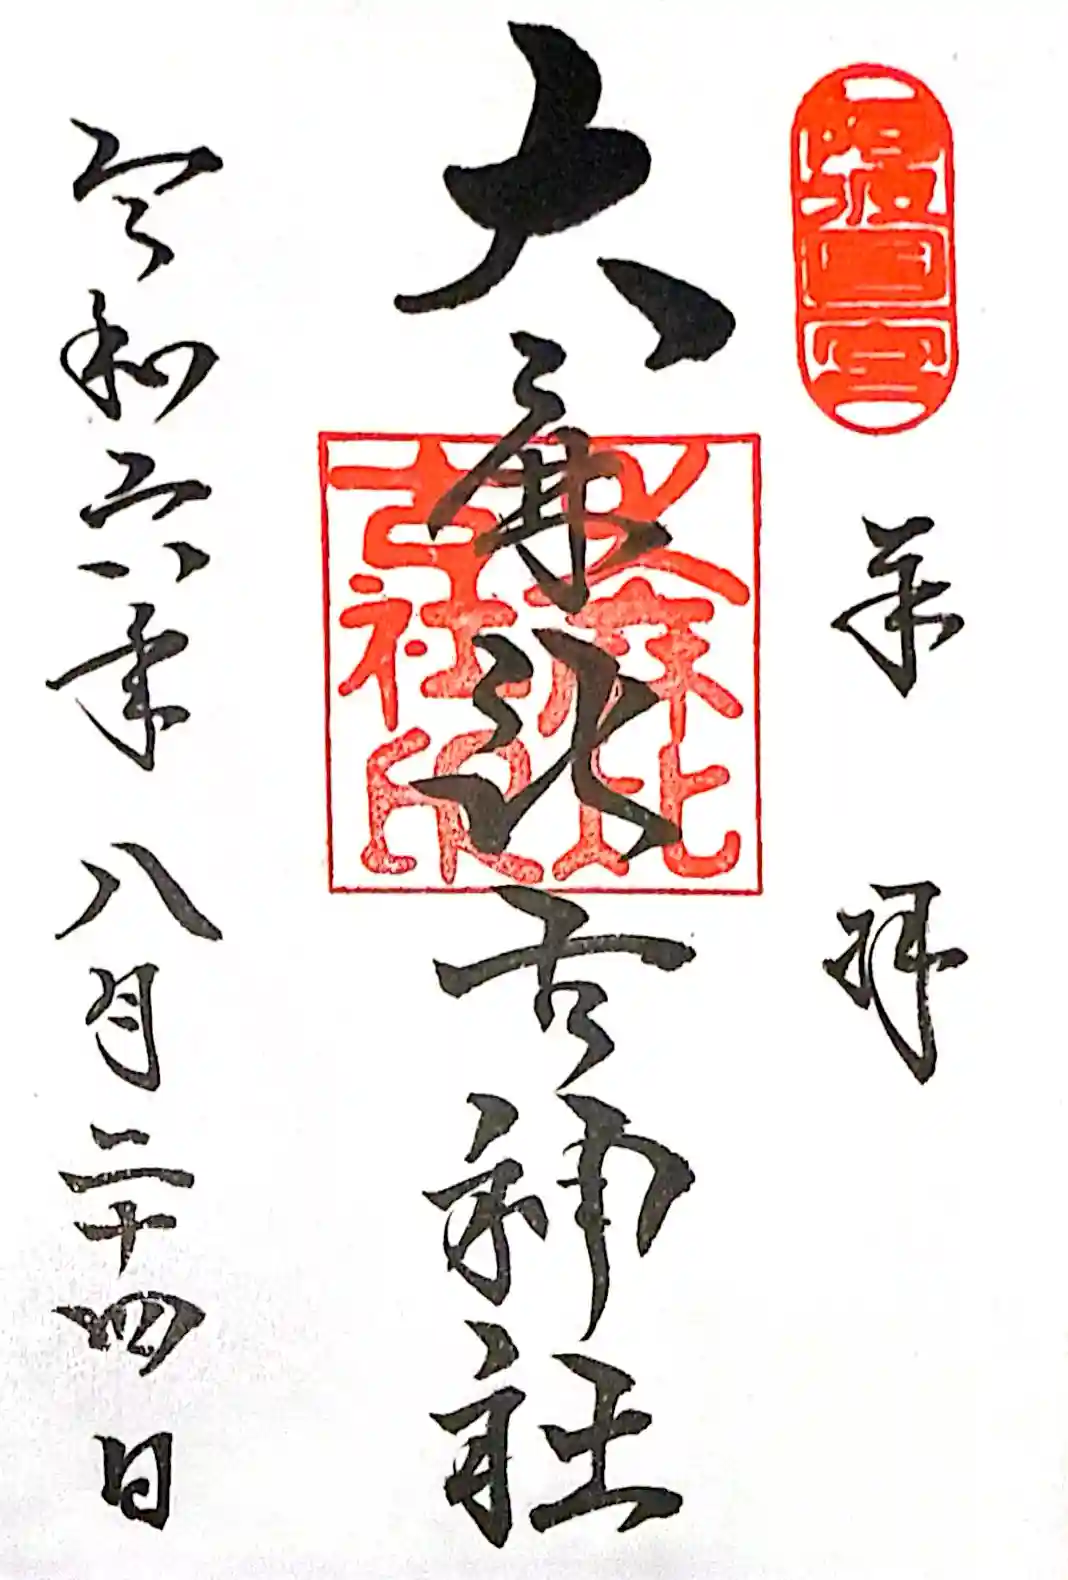 奉拝
阿波国一宮
大麻比古神社
大麻比古社印
令和六年八月二十四日